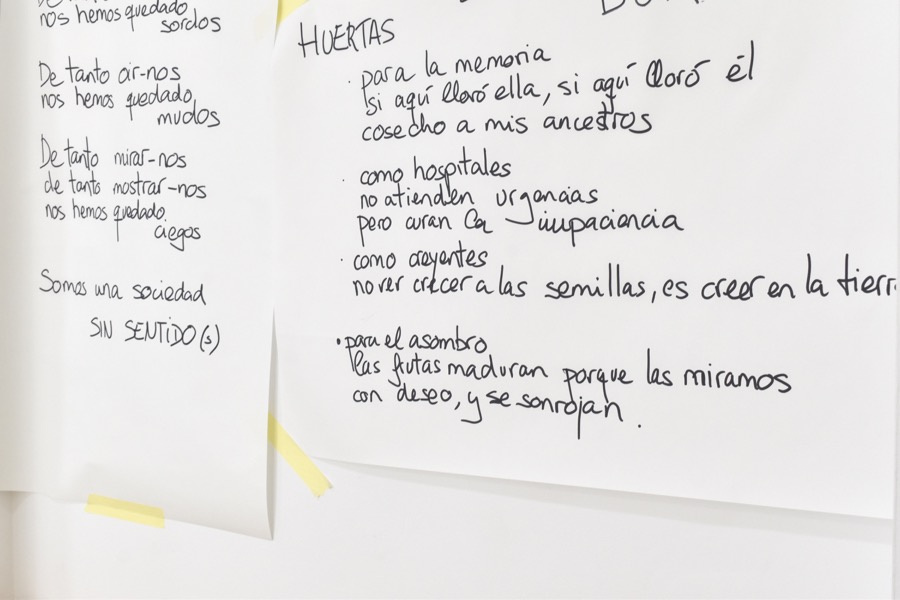 nos hemos quedado
sordos
De tanto oir-nos
nos hemos quedado
mudos
De tanto mirar-nos
de tanto mostrar-nos
nos hemos quedado
ciegos
Somos una sociedad
SIN SENTIDO(s)
HUERTAS
· para la memoria
si aquí lloró ella, si aquí lloró él
cosecho a mis ancestros
· como hospitales
no atienden urgencias
pero curan la impaciencia
· como creyentes
no ver crecer a las semillas, es creer en la tierr
· para el asombro
las frutas maduran porque las miramos
con deseo, y se sonrojan.